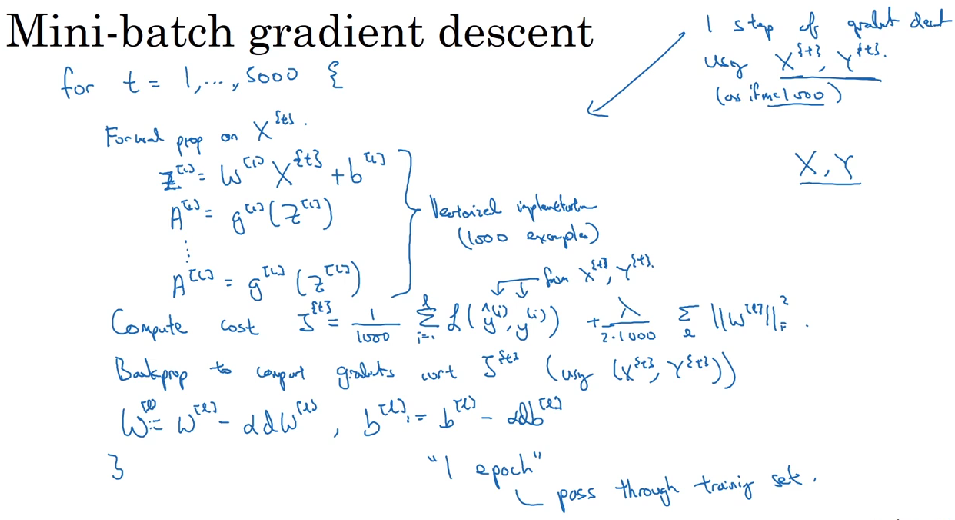 Mini-batch gradient descent
1 step of gradient descent
using X^{t}, Y^{t}.
(as if m=1000)
for t = 1,..., 5000 {
Forward prop on X^{t}.
Z^[1] = W^[1] X^{t} + b^[1]
A^[1] = g^[1](Z^[1])
⋮
A^[L] = g^[L](Z^[L])
Vectorized implementation
(1000 examples)
X, Y
from X^{t}, Y^{t}.
Compute cost J^{t} = 1/1000 Σ_{i=1}^{l} L(ŷ^(i), y^(i)) + λ/(2·1000) Σ_l ||W^[l]||_F^2.
Backprop to compute gradients wrt J^{t} (using (X^{t}, Y^{t}))
W^[l] := W^[l] - αdW^[l], b^[l] := b^[l] - αdb^[l]
}
"1 epoch"
pass through training set.